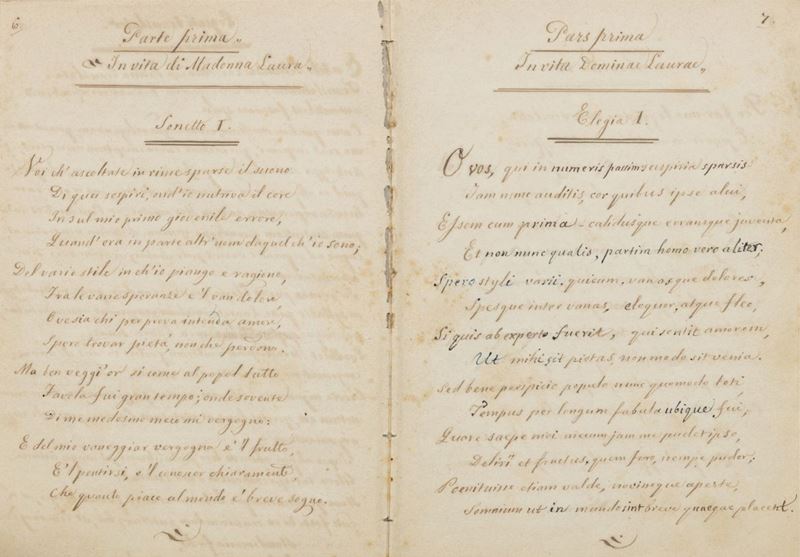 6.
Parte prima„
In vita di Madonna Laura„
Sonetto I.
Voi ch' ascoltate in rime sparse il suono
Di quei sospiri, ond' io nutriva il core
In sul mio primo giovenile errore,
Quand' ora in parte altr' uom da quel ch' io sono;
Del vario stile in ch' io piango e ragiono,
Fra le vane speranze e 'l van dolore,
Ove sia chi per prova intenda amore,
Spero trovar pietà, non che perdono.
Ma ben veggi' or si come al popol tutto
Favola fui gran tempo; onde sovente
Di me medesmo meco mi vergogno:
E del mio vaneggiar vergogna è 'l frutto,
E 'l pentirsi, e 'l conoscer chiaramente,
Che quanto piace al mondo è breve sogno.
7.
Pars prima
In vita Dominae Laurae„
Elegia I.
O vos, qui in numeris passim suspiria sparsis
Iam nunc auditis, cor quibus ipse alui,
Essem cum prima calidusque erransque juventa,
Et non nunc qualis, partim homo vero aliter,
Spero styli varii, quicum, vanosque dolores,
Spesque inter vanas, eloquor, atque fleo,
Si quis ab experto fuerit, qui sentit amorem,
Ut mihi sit pietas, non modo sit venia.
Sed bene perspicio populo nunc quomodo toti
Tempus per longum fabula ubique fui,
Quare saepe mei mecum jam me pudet ipso,
Delirii et fructus, quem fero, nempe pudor;
Poenituisse etiam valde, novisseque aperte,
Somnium ut in mundo sint breve quaeque placent.